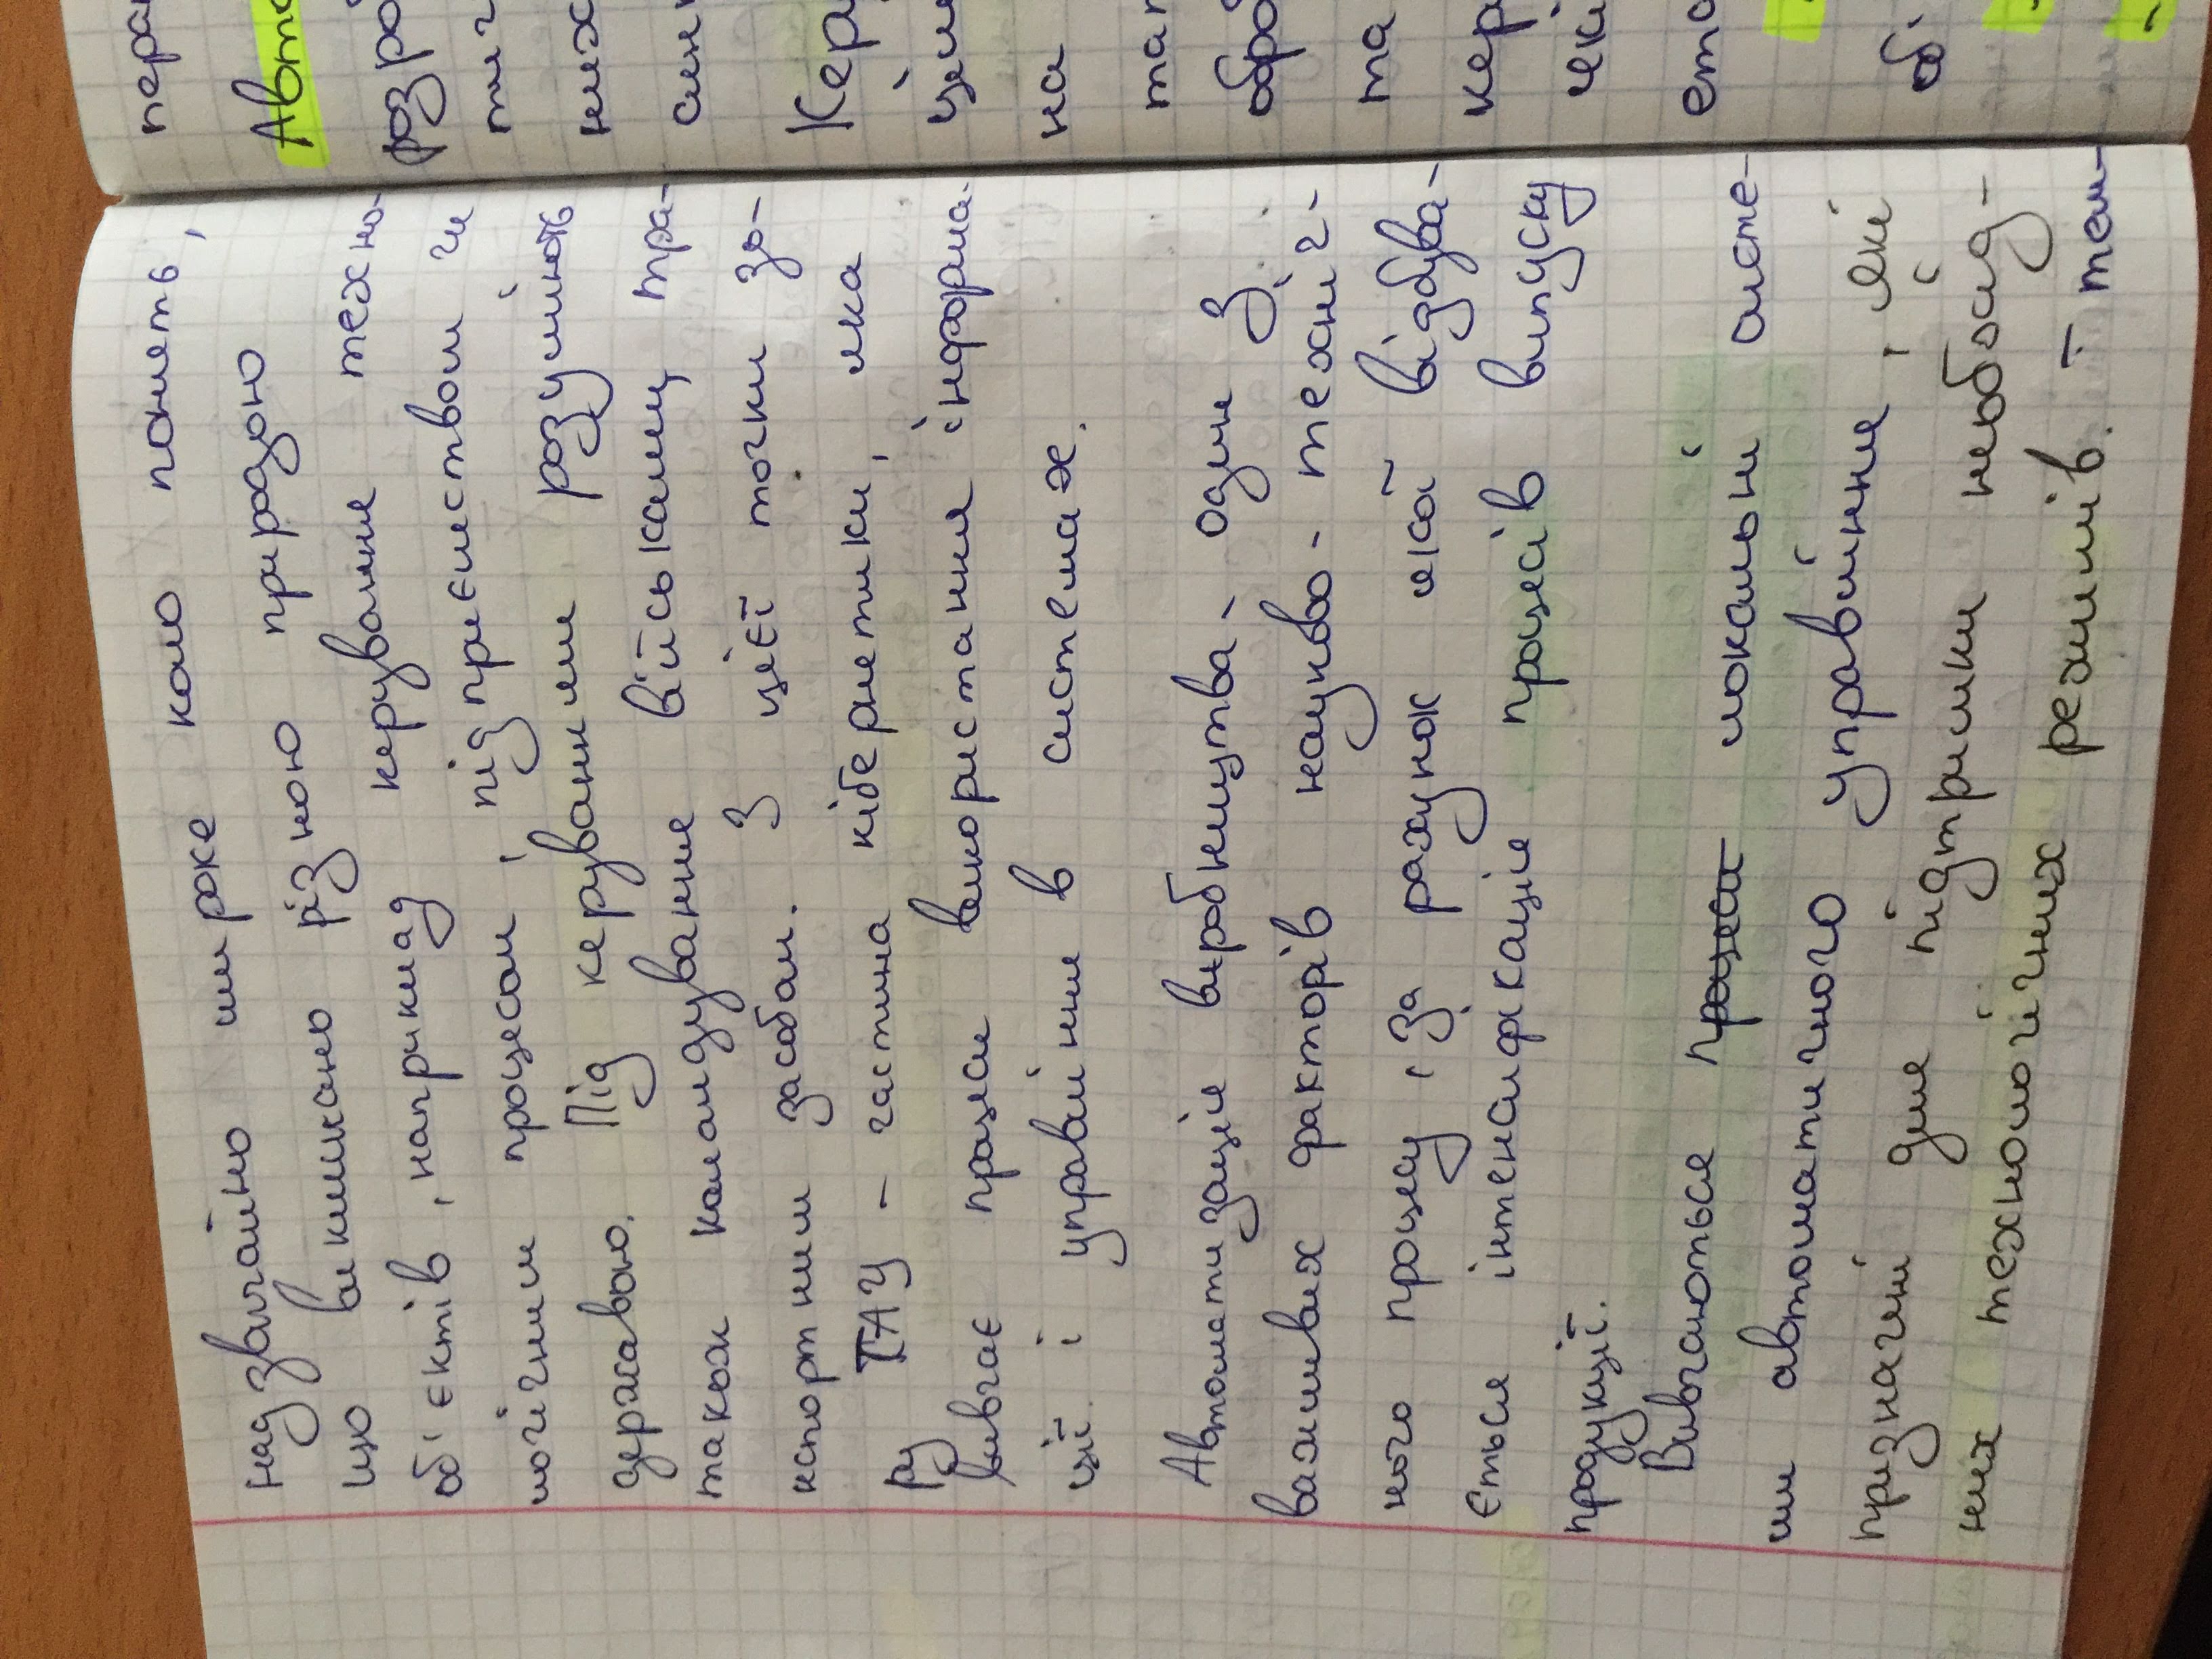 надзвичайно широке коло понять,
що викликано різною природою
об'єктів, наприклад керування техно-
логічним процесом, підприємством чи
державою. Під керуванням розуміють
також командування військами, тра-
нспортним засобом. З цієї точки зо-
ру ТАУ - частина кібернетики, яка
вивчає процеси використання інформа-
ції і управління в системах.
Автоматизація виробництва - один з
важливих факторів науково-техніч-
ного процесу, за рахунок якої відбува-
ється інтенсифікація процесів випуску
продукції.
Вивчаються процеси локальні систе-
ми автоматичного управління, які
призначені для підтримки необхід-
них технологічних режимів. - тем-
Авто
розро
них
Керу
на
та
обро
та
кер
об'